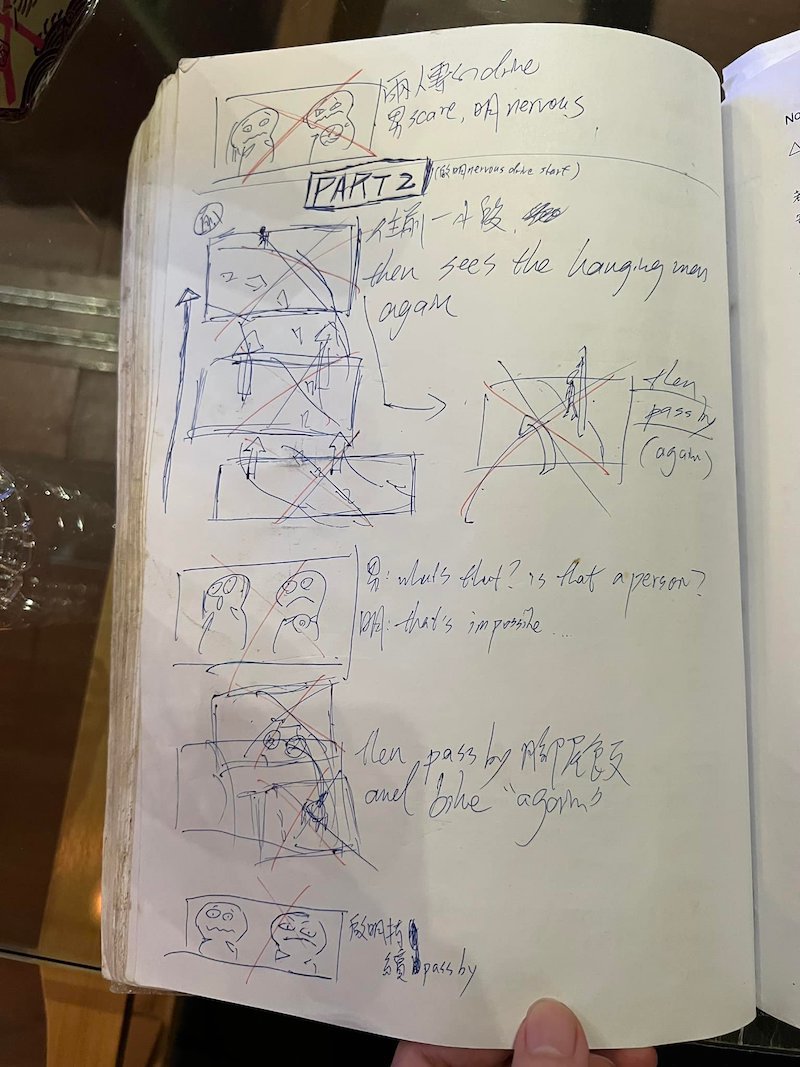 兩人專心drive
男scare, 明nervous
PART 2 (啟明nervous drive start)
往前一小段,
then sees the hanging man
again
then
pass by
(again)
男: what's that? is that a person?
明: that's impossible...
then pass by 腳尾飯
and bike "again"
啟明持
續 pass by
No